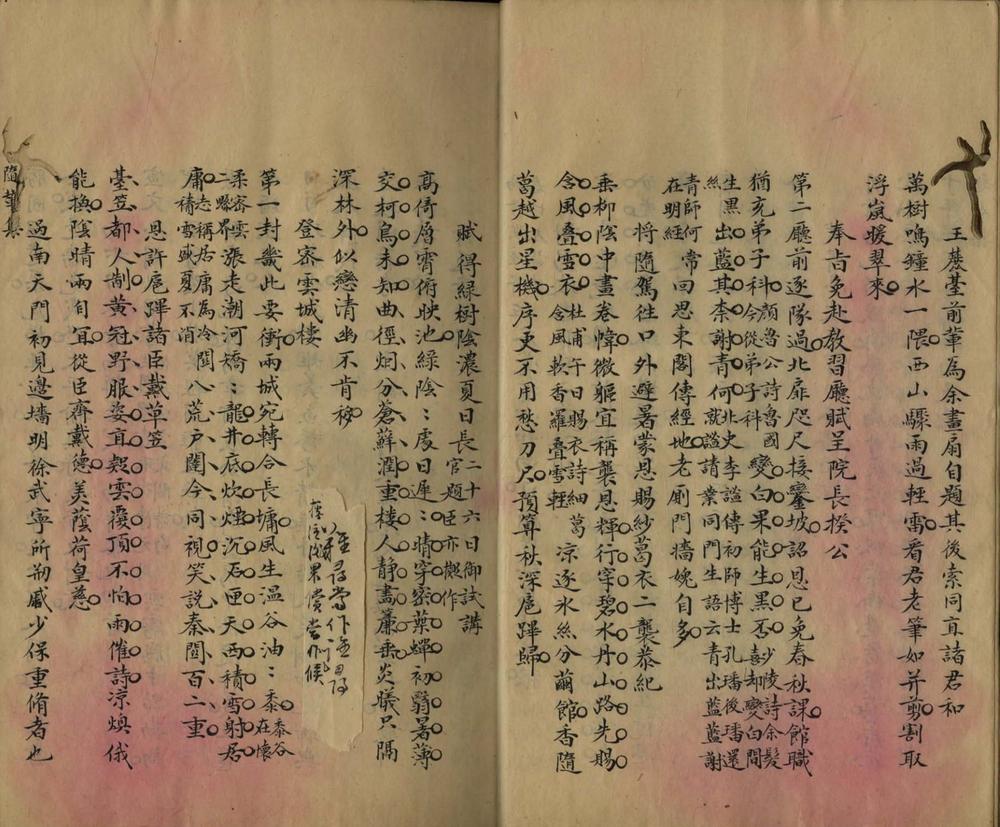 王蓬臺前輩為余畫扇自題其後索同直諸君和
萬樹鳴鐘水一隈西山驟雨過輕雷看君老筆如并剪割取
浮嵐暖翠來
奉旨免赴教習廳賦呈院長揆公
第二廳前逐隊過北扉咫尺接鑾坡詔恩已免春秋課館職
猶充弟子科顏魯公詩魯國今從弟子科變白果能生黑否少陵詩余髮喜却變白間
生黑絲出藍其柰謝青何北史李謐傳初師博士孔璠後璠還就謐請業同門生語云青出藍藍謝
青師何在明經常回思東閣傳經地老廁門牆媿自多
將隨駕往口外避暑蒙恩賜紗葛衣二襲恭紀
垂柳陰中畫卷幃微軀宜稱襲恩輝行穿碧水丹山路先賜
含風疊雪衣杜甫午日賜衣詩細葛含風軟香羅疊雪輕涼逐冰絲分繭館香隨
葛越出星機序更不用愁刀尺預算秋深扈蹕歸
賦得綠樹陰濃夏日長二十六日御試講官題臣亦擬作
高倚層霄俯映池綠陰陰處日遲遲晴穿密葉蟬初翳暑薄
交柯鳥未知曲徑烟分蒼蘚潤重樓人靜畫簾垂炎曦只隔
深林外似戀清幽不肯移
登密雲城樓
第一封畿此要衝兩城宛轉合長墉風生溫谷油油黍黍谷在懷
柔密雲二縣界漲走潮河橋橋龍井底炊煙沉石匣天西積雪射居
庸志稱居庸為冷積雪盛夏不消閶八荒戶闥今同視笑說秦關百二重
恩許扈蹕諸臣戴草笠
臺笠都人制黃冠野服姿耳穀雲覆頂不怕雨催詩涼燠俄
能換陰晴兩自宜從臣齊戴德美蔭荷皇慈
過南天門初見邊墻明徐武寧所刱戚少保重脩者也
隨輦集